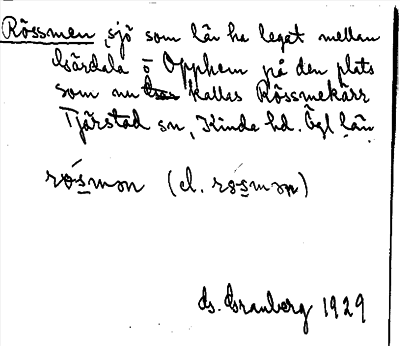 Rössmen, sjö som lär ha legat mellan
Gärdala o Opphem på den plats
som nu kallas Rössmekärr
Tjärstad sn, Kinda hd. Ögl län
rósmən (el. rɵsmən)
G. Granberg 1929